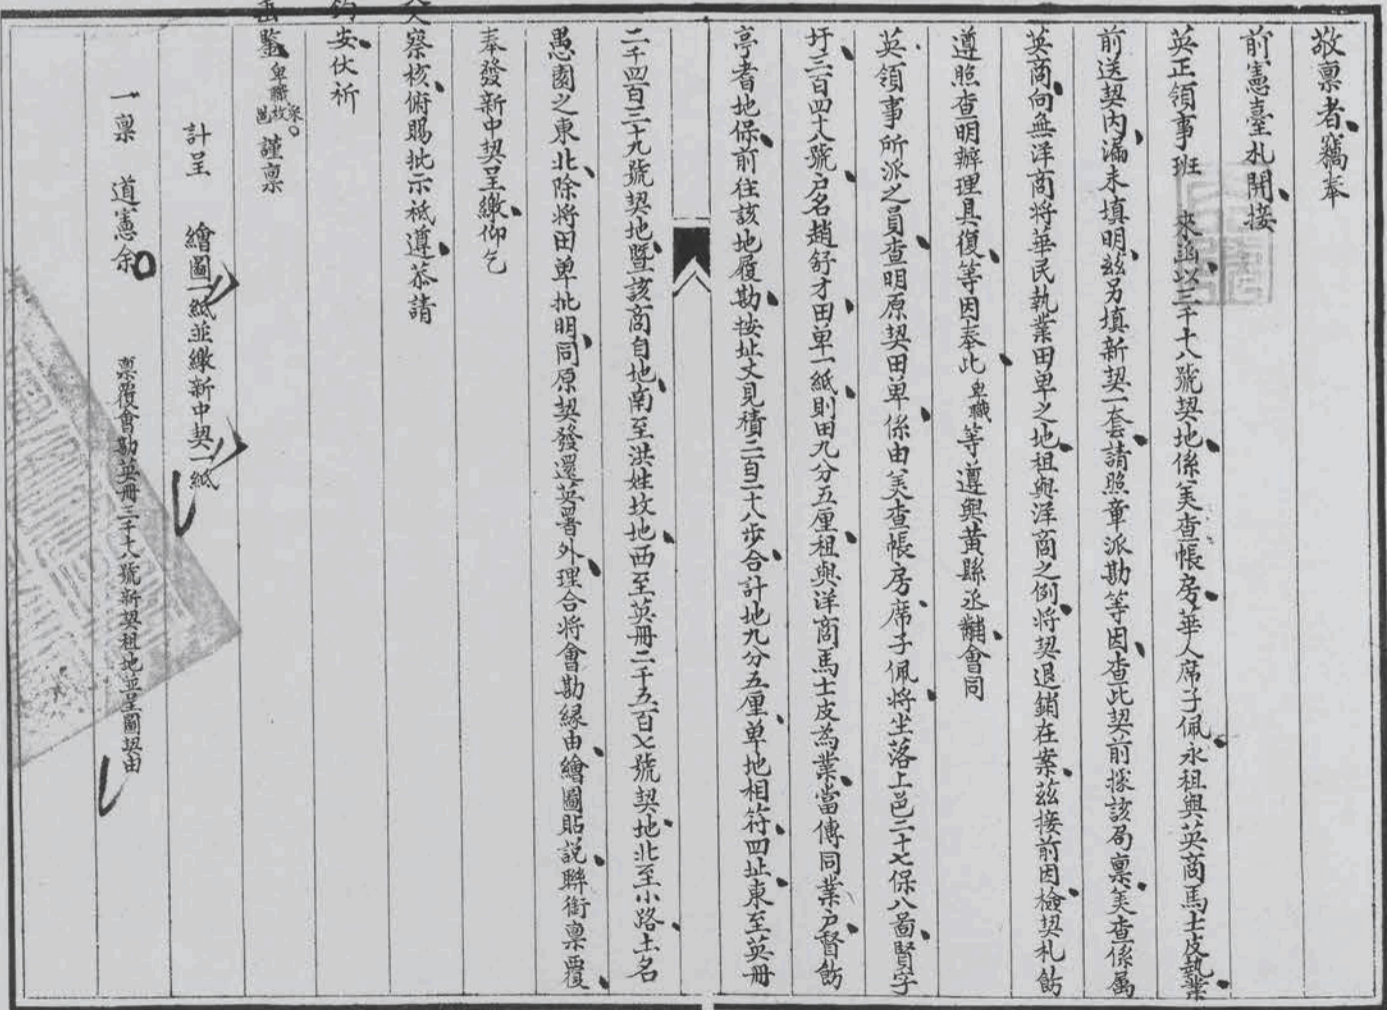 敬稟者竊奉
前憲臺札開接
英正領事班 來函以三千十八號契地係美查帳房華人席子佩永租與英商馬士皮執業
前送契內漏未填明茲另填新契一套請照章派勘等因查此契前據該局稟美查係屬
英商向無洋商將華民執業田单之地租與洋商之例將契退銷在案茲接前因檢契札飭
遵照查明辦理具復等因奉此卑職等遵與黃縣丞黼會同
英領事所派之員查明原契田单係由美查帳房席子佩將坐落上邑二十七保八啚賢字
圩三百四十八號户名趙舒才田单一紙則田九分五厘租與洋商馬士皮為業當傳同業户督飭
亭耆地保前往該地履勘按址丈見積二百二十八步合計地九分五厘单地相符四址東至英冊
二千四百三十九號契地暨該商自地南至洪姓坟地西至英冊二千五百七號契地北至小路土名
愚園之東北除將田单批明同原契發還英署外理合將會勘緣由繪圖貼說聯銜稟覆
奉發新中契呈繳仰乞
察核俯賜批示祗遵恭請
鈞安伏祈
鑒卑職 謹稟
計呈 繪圖一紙並繳新中契一紙
一稟 道憲余 稟覆會勘英冊三千十八號新契租地並呈圖契由